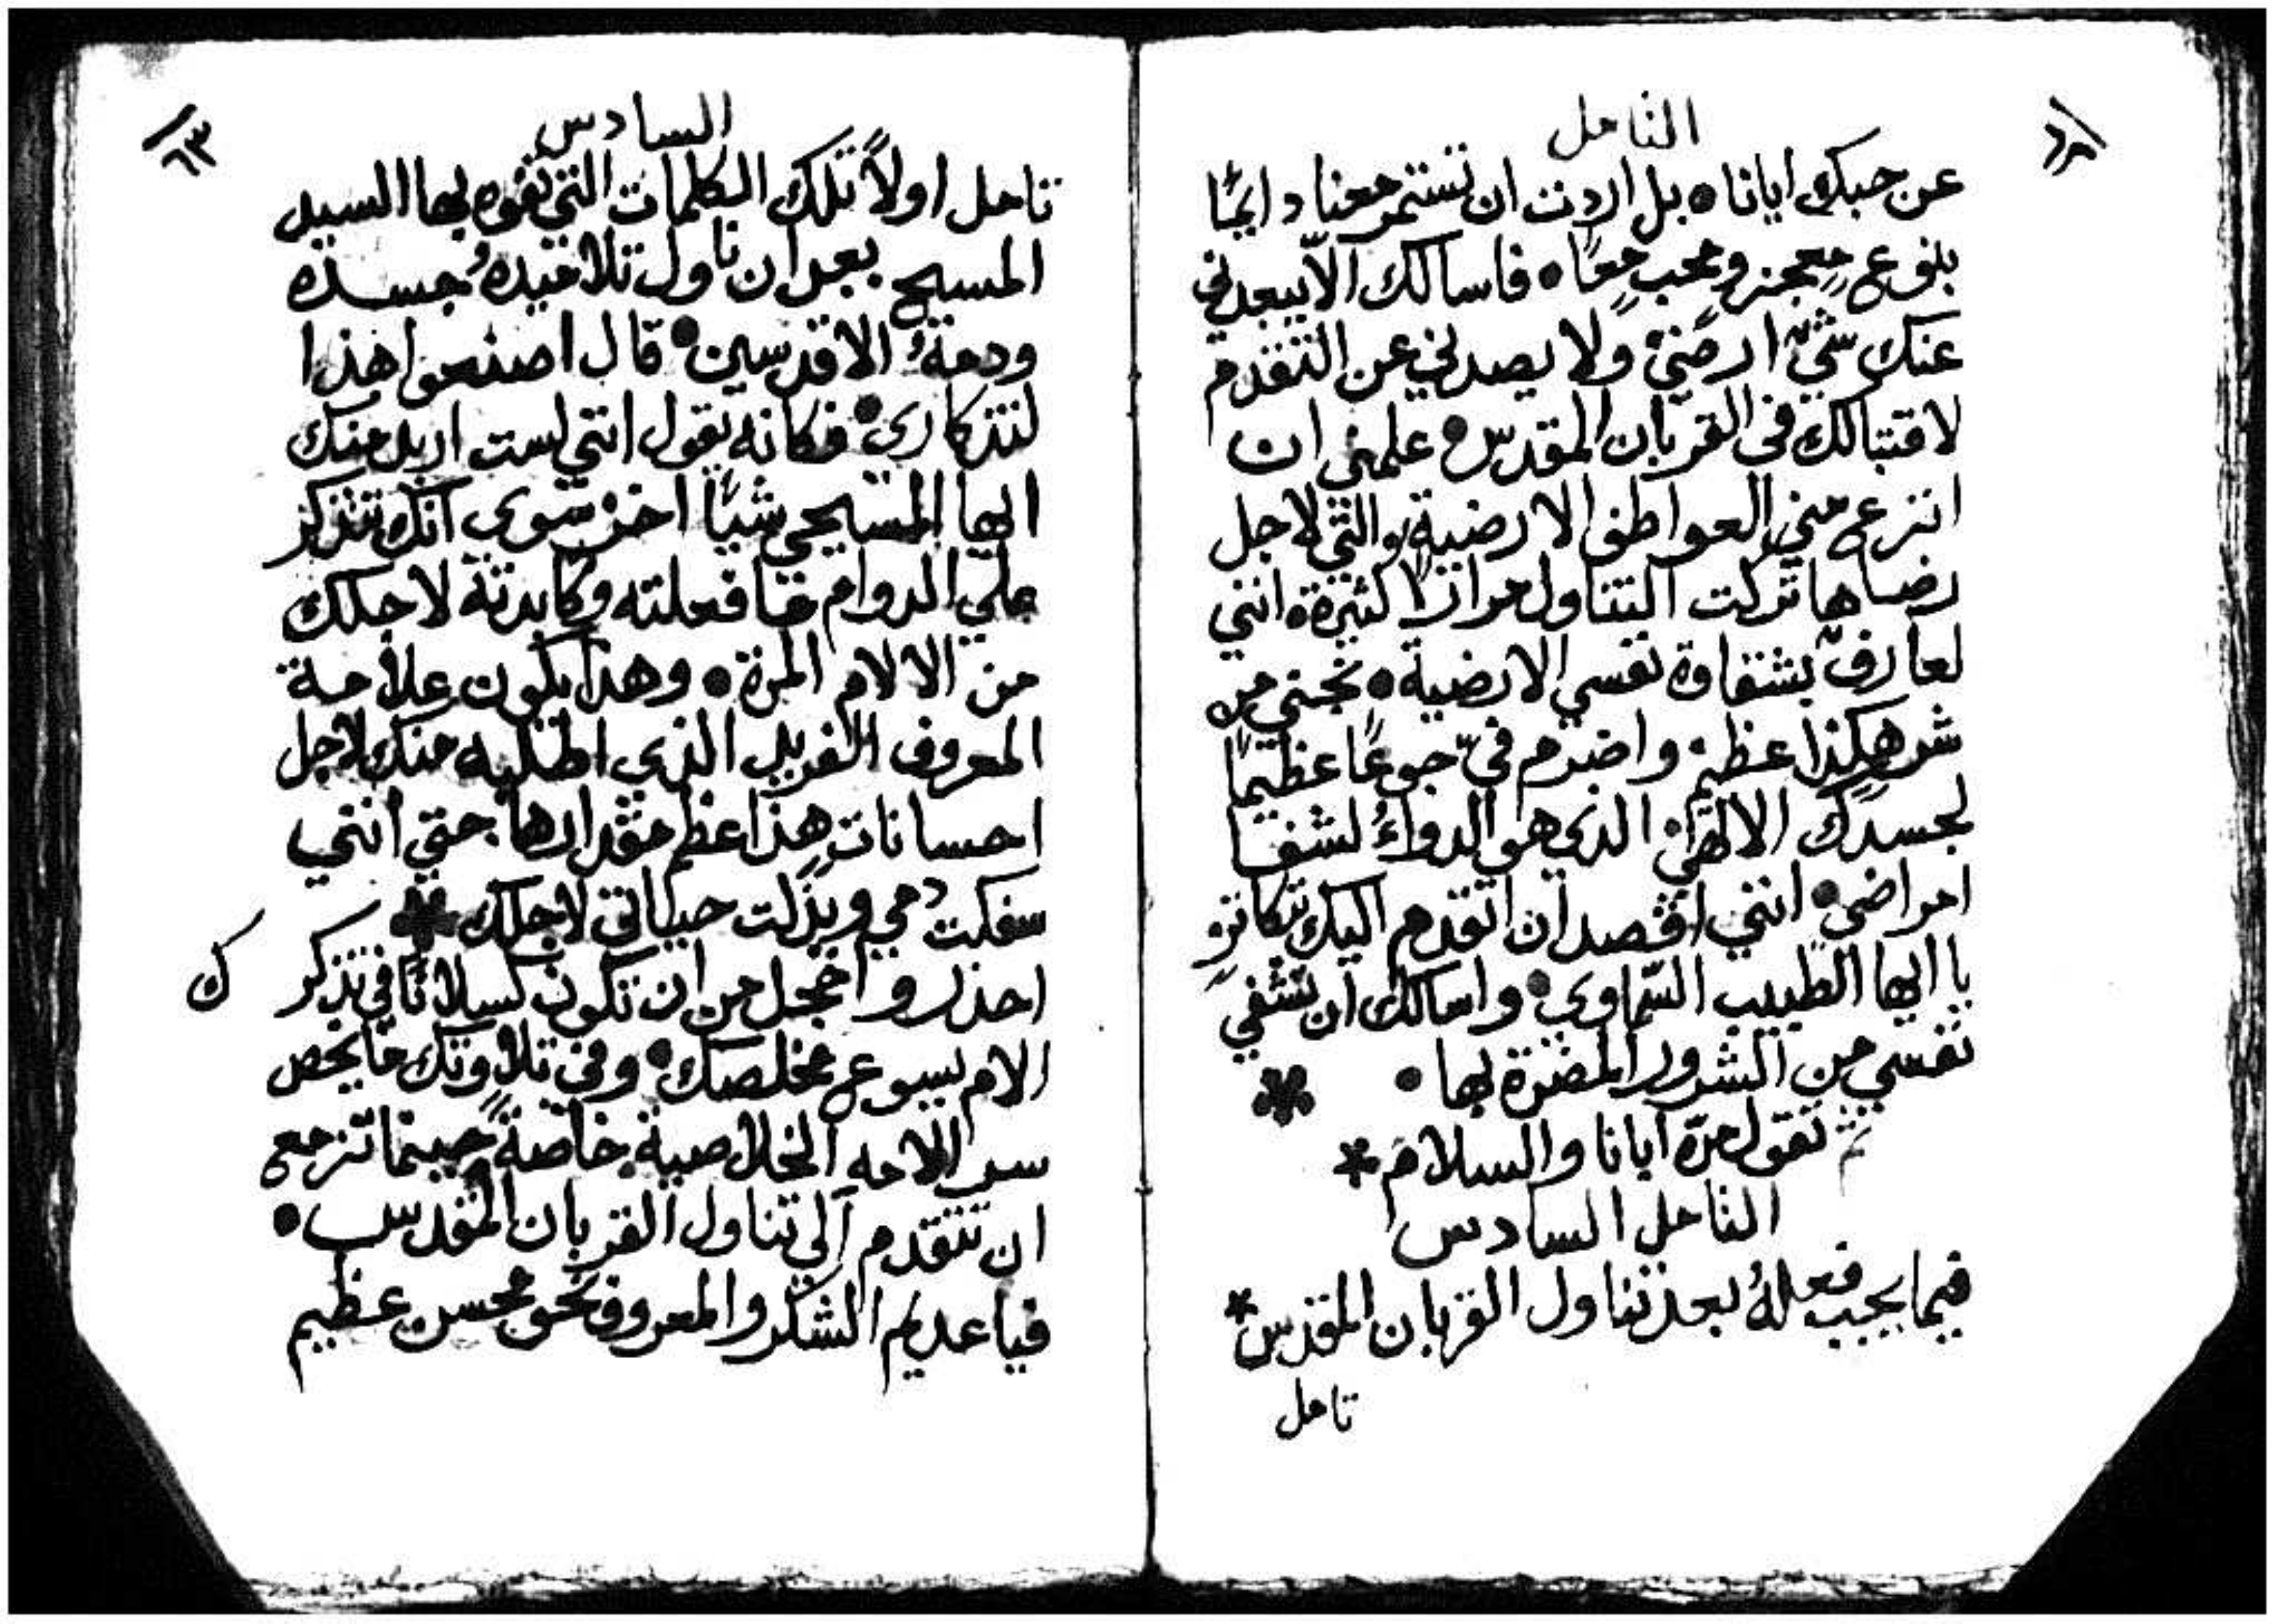 التامل
عن حبك ايانا • بل اردت ان تستمر معنا دايمًا
بنوع معجز ومحب معًا • فاسالك الاّ يبعدني
عنك شيٌ ارضيٌ ولا يصدني عن التقدم
لاقتبالك في القربان المقدس • علمني ان
انزع مني العواطف الارضية والتي لاجل
رضاها تركت التناول مرارًا كثيرة انني
لعارفٌ بشقاوة نفسي الارضية • نجني من
شر هكذا عظيم واضرم فيّ جوعًا عظيمًا
لجسدك الالهي الذي هو الدواءُ لشفا
امراضي • انني اقصد ان اتقدم اليك بتكاثرٍ
يا ايها الطبيب السماوي • واسالك ان تشفي
نفسي من الشرور المضرة بها • *
ثم تقول مرّة ابانا والسلام *
التامل السادس
فيما يجب فعلهُ بعد تناول القربان المقدس *
تامل
السادس
٦٣
تامل اولاً تلك الكلمات التي تفوه بها السيد
المسيح بعد ان ناول تلاميدهُ جسده
ودمهُ الاقدسين • قال اصنعوا هذا
لتذكاري • فكانه يقول انني لست اريد منك
ايها المسيحي شيًا اخر سوى انك تتذكر
علي الدوام ما فعلته وكابدته لاجلك
من الالام المرة • وهذا يكون علامة
المعروف الفريد الذي اطلبه منك لاجل
احسانات هذا عظم مقدارها حتي انني
سفكت دمي وبذلت حياتي لاجلك *
احذر واخجل من ان تكون كسلانًا في تذكر
ك
الام يسوع مخلصك • وفي تلاوتك ما يخص
سر الامه الخلاصية خاصةً حينما تزمع
ان تتقدم الي تناول القربان المقدس •
فيا عديم الشكر والمعروف نحو محسن عظيم